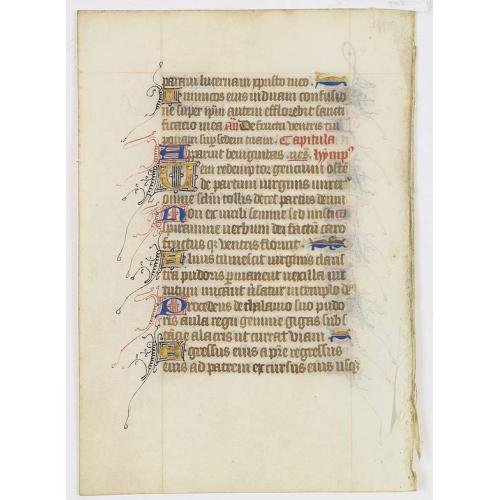 paravi lucernam xpristo meo.
Inimicos eius induam confusio
ne super ipm autem efflorebit sancti
ficacio mea añ De fructu ventris tui
ponam super sedem tuam. Capitula
Aparuit benignitas. ympn⁹
Veni redemptor gencium oste
de partum virginis miret
omne sclm tollis decet partus deum
Non ex virili semine sed mistico
spiramine verbum dei factū caro
fructus q ventris floruit.
Alvus tumescit virginis claus
tra pudoris p̄manent vexilla vir
tutum micant v̄satur in templo d̄s
Procedens de thalamo suo pudo
ris aula regia gemine gigas subs
tācie alacris ut currat viam
Egressus eius a pr̄e regressus
eius ad patrem excursus eius usq